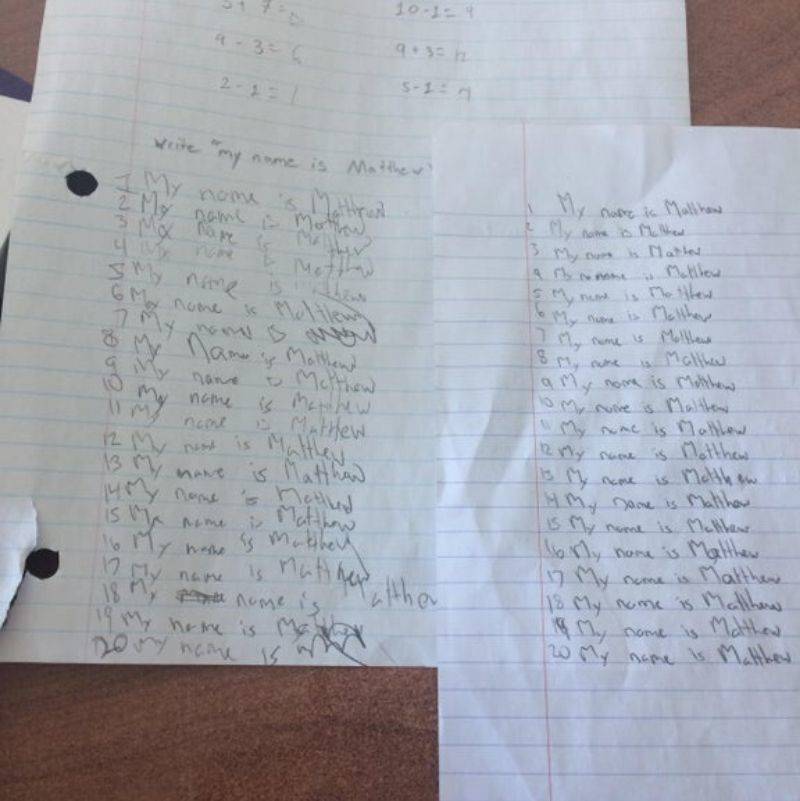 5 + 7 =
10 - 1 = 9
9 - 3 = 6
9 + 3 = 12
2 - 1 = 1
5 - 1 =
write "my name is Matthew"
1 My name is Matthew
2 My name is Matthew
3 My name is Matthew
4 My name is Matthew
5 My name is
6 My name is Matthew
7 My name is
8 My Name is Matthew
9 My name is Matthew
10 My name is Matthew
11 My name is Matthew
12 My name is Matthew
13 My name is Matthew
14 My name is Matthew
15 My name is Matthew
16 My name is Matthew
17 My name is Matthew
18 My name is Matthew
19 My name is Matthew
20 My name is
1 My name is Matthew
2 My name is Matthew
3 My name is Matthew
4 My name is Matthew
5 My name is Matthew
6 My name is Matthew
7 My name is Matthew
8 My name is Matthew
9 My name is Matthew
10 My name is Matthew
11 My name is Matthew
12 My name is Matthew
13 My name is Matthew
14 My name is Matthew
15 My name is Matthew
16 My name is Matthew
17 My name is Matthew
18 My name is Matthew
19 My name is Matthew
20 My name is Matthew